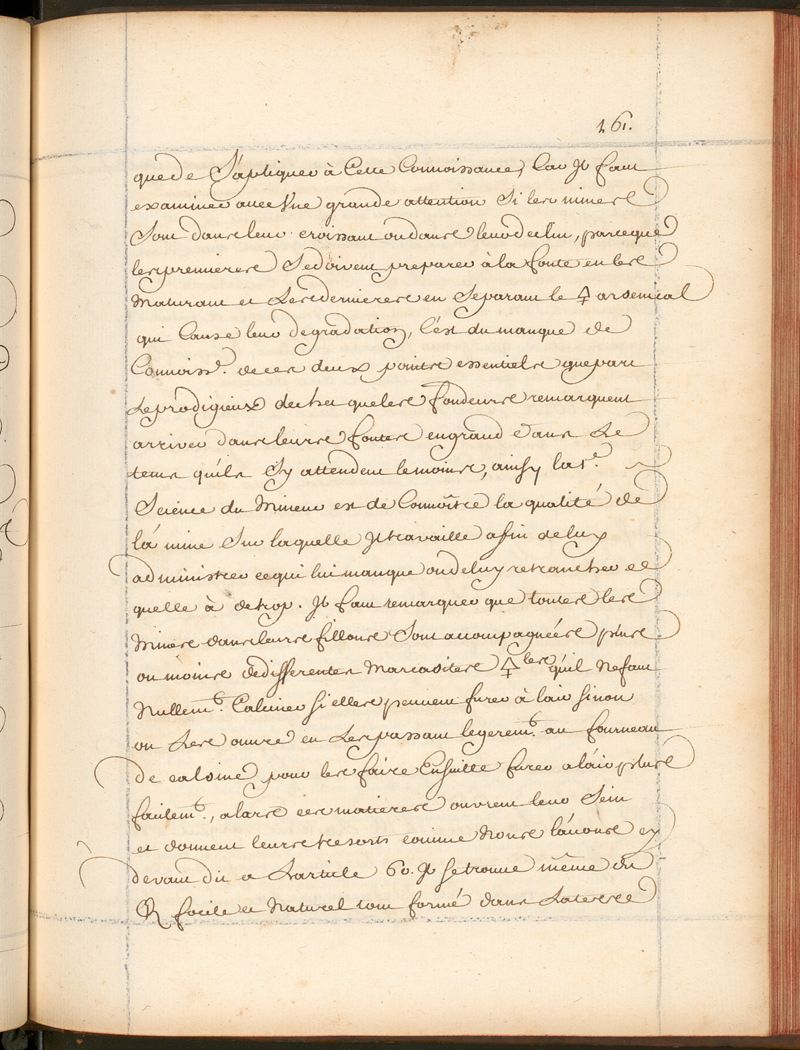 161.
que de S'apliquer à Cette Connoissance, Car Jl faut
examiner avec Vne grande attention Si les mines
Sont dans leur croissant ou dans leur declin, parceque
les premieres Se doivent preparer à la fonte en les
Maturant et Les dernieres en Separant le 🜍 arsenical
qui Cause leur degradation, C'est du manque de
Connoiss.e de ces deux points essentiels que part
Le prodigieux dechet que les fondeurs remarquent
arriver dans leurs fontes en grand dans Le
tems qu'ils S'y attendent le moins, ainsy la 1.e
Science du Mineur est de Connoître la qualité de
la mine Sur laquelle Jl travaille affin de luy
administrer ce qui lui manque ou de luy retrancher ce
quelle à de trop. Jl faut remarquer que toutes les
Mines dans leurs fillons Sont accompagnées plus
ou moins de differentes Marcasites 🜍 les qu'il ne faut
Nullem.t Calciner si elles peuvent fuser à l'air sinon
on Les ouvre en Les passant legerem.t au fourneau
de calcine pour les faire Ensuitte fuser a l'air plus
facilem.t, alors ces matieres ouvrent leur Sein
et donnent leurs tresors comme Nous l'avons cy
devant dit a L'article 60. Jl se trouve même du
focile et Naturel tout formé dans La terre